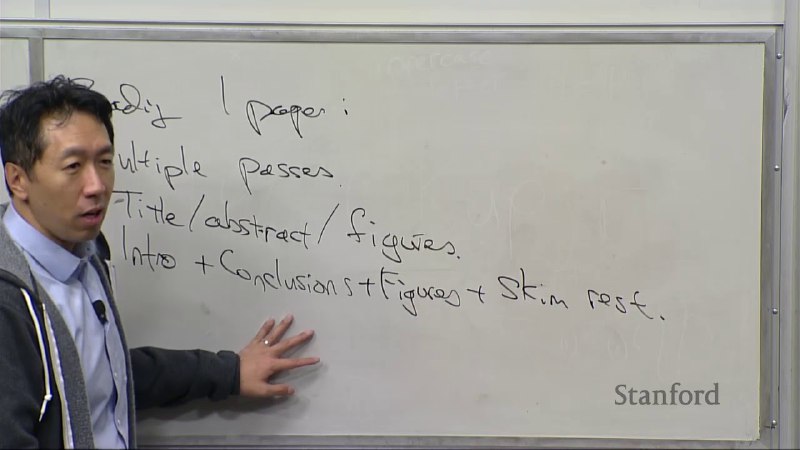 1 paper:
ultiple passes.
Title/abstract/figures.
Intro + Conclusions + Figures + Skim rest.
Stanford